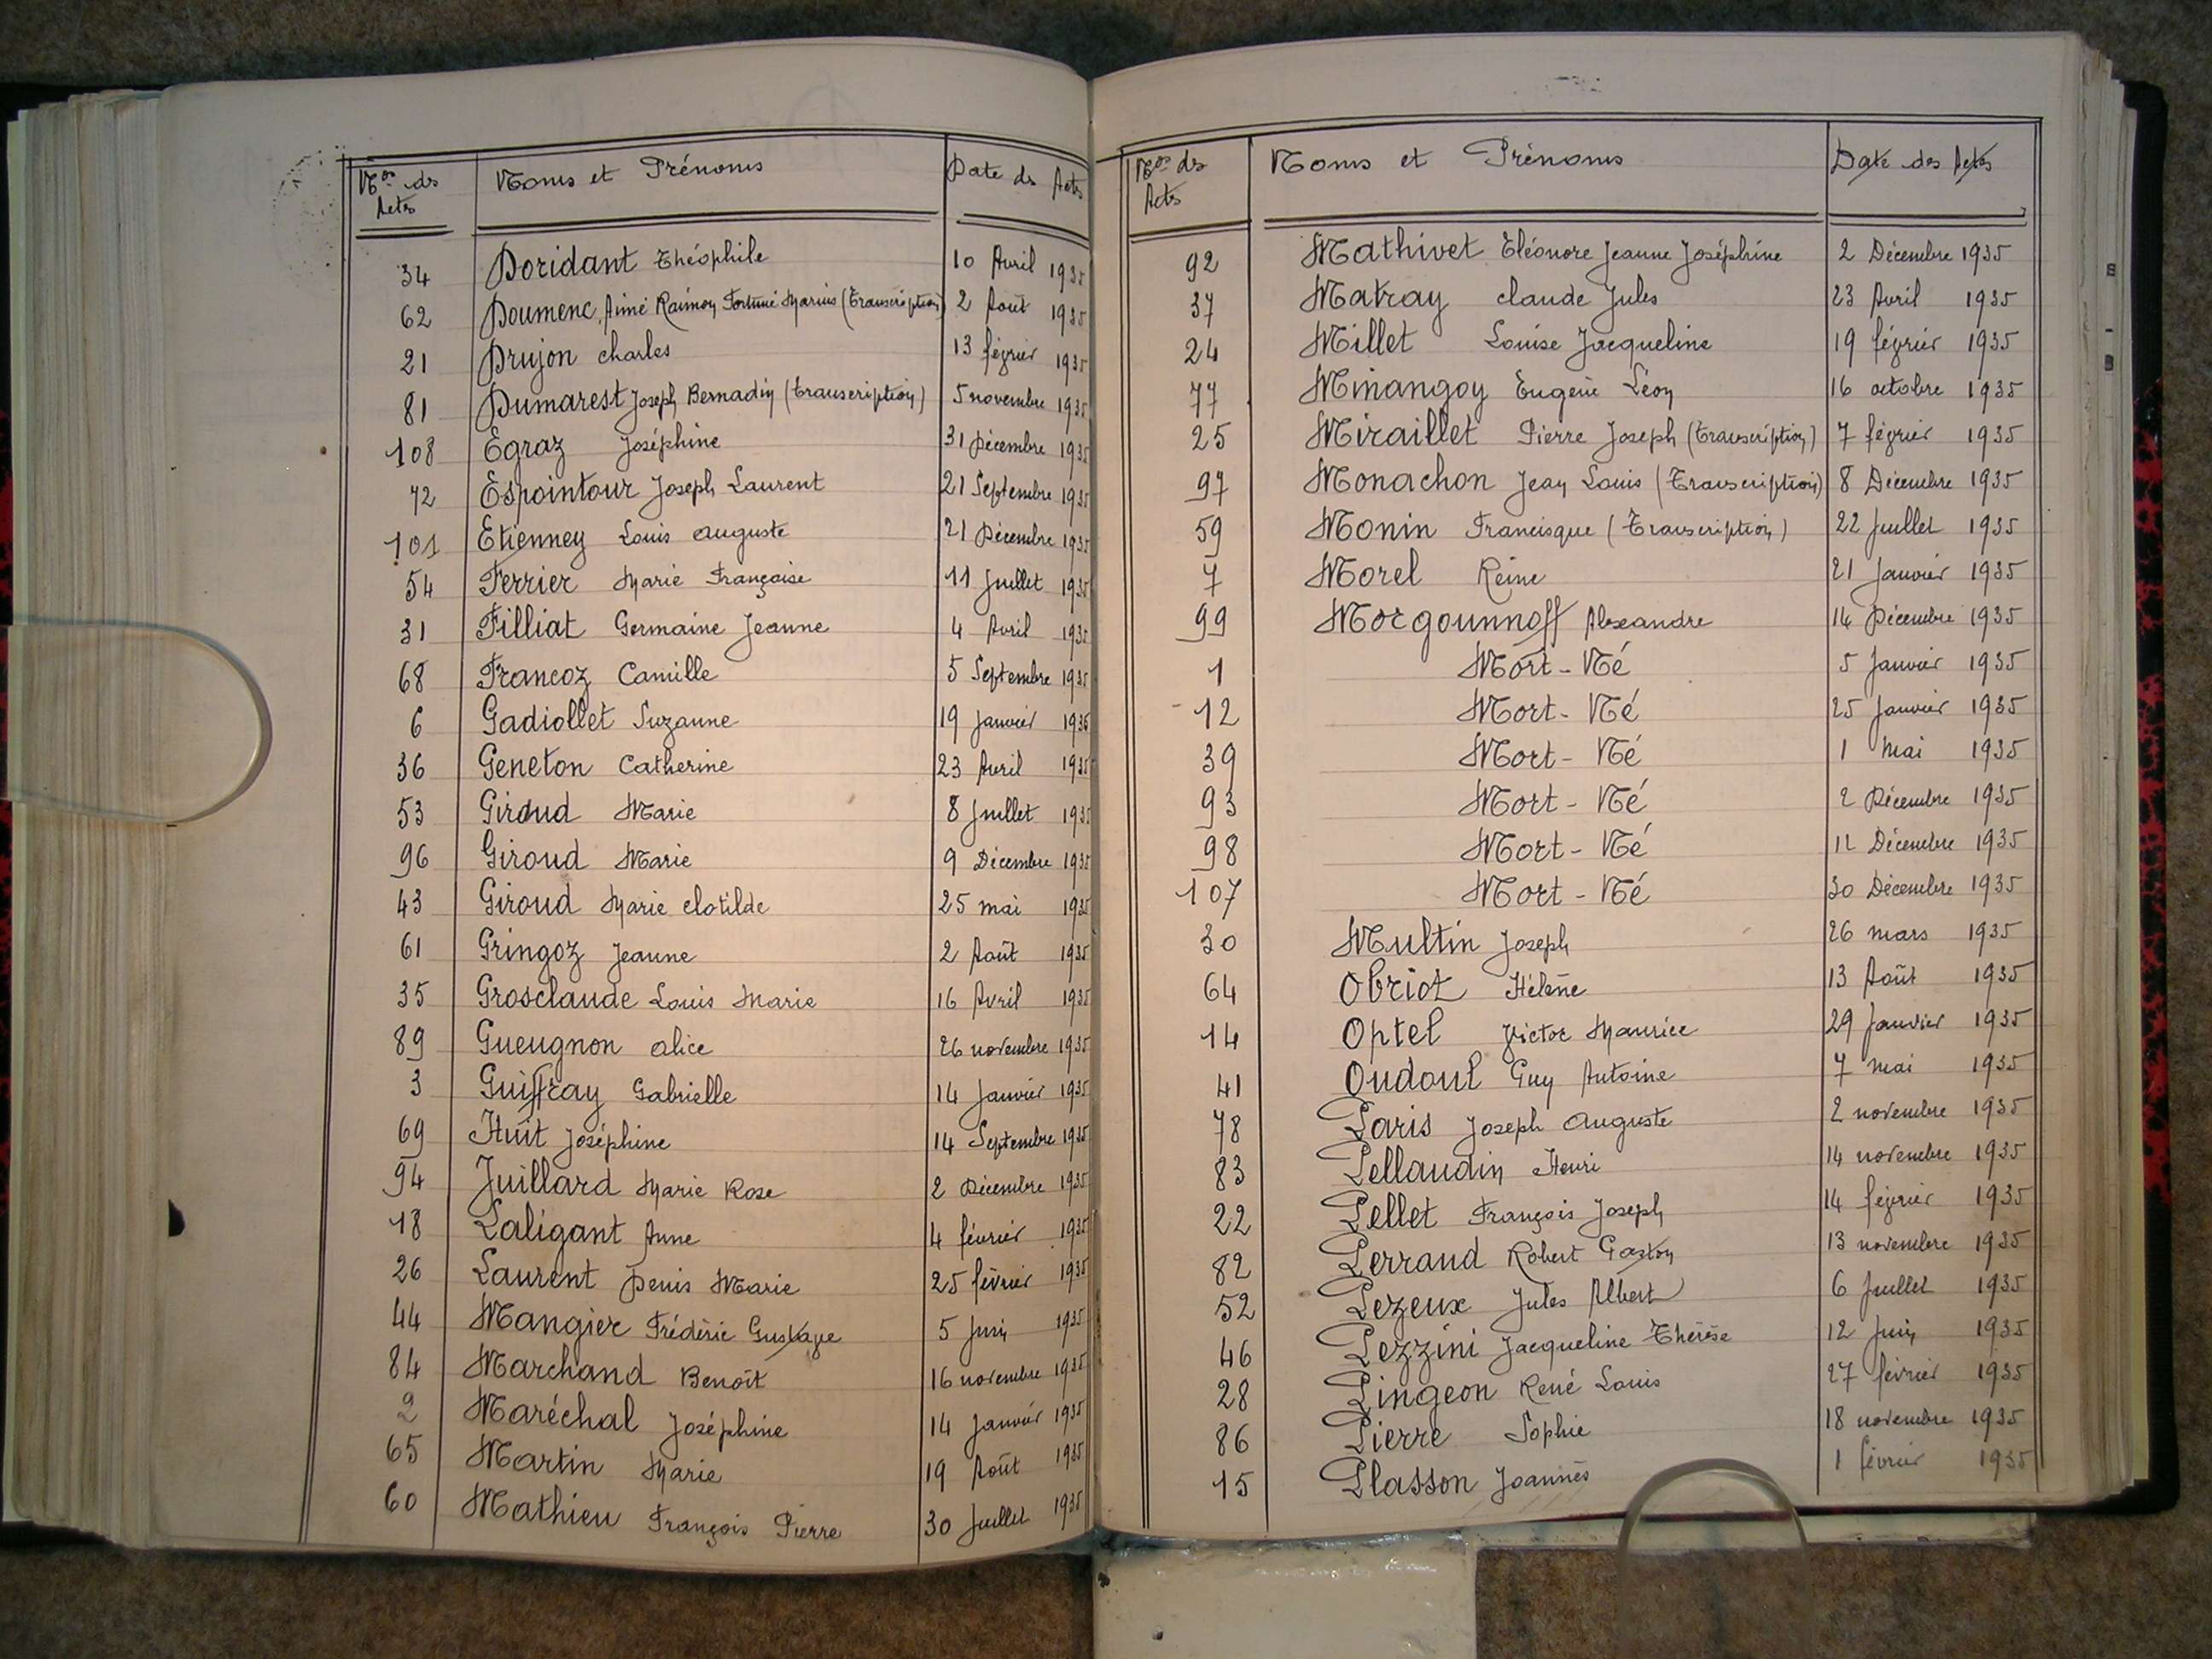 Nos des Actes Noms et Prénoms Date des Actes
34 Doridant Théophile 10 Avril 1935
62 Doumenc, Aimé Raimon Fortuné Marius (Transcription) 2 Août 1935
21 Drujon Charles 13 février 1935
81 Dumarest Joseph Bernadin (transcription) 5 novembre 1935
108 Egraz Joséphine 31 Décembre 1935
72 Espointour Joseph Laurent 21 Septembre 1935
101 Etienney Louis Auguste 21 Décembre 1935
54 Ferrier Marie Françoise 11 Juillet 1935
31 Filliat Germaine Jeanne 4 Avril 1935
68 Francoz Camille 5 Septembre 1935
6 Gadiollet Suzanne 19 Janvier 1935
36 Geneton Catherine 23 Avril 1935
53 Giroud Marie 8 Juillet 1935
96 Giroud Marie 9 Décembre 1935
43 Giroud Marie Clotilde 25 mai 1935
61 Gringoz Jeanne 2 Août 1935
35 Grosclaude Louis Marie 16 Avril 1935
89 Gueugnon Alice 26 novembre 1935
3 Guiffray Gabrielle 14 Janvier 1935
69 Huit Joséphine 14 Septembre 1935
94 Juillard Marie Rose 2 Décembre 1935
18 Laligant Anne 4 février 1935
26 Laurent Denis Marie 25 février 1935
44 Mangier Frédéric Gustave 5 Juin 1935
84 Marchand Benoît 16 novembre 1935
2 Maréchal Joséphine 14 Janvier 1935
65 Martin Marie 19 Août 1935
60 Mathieu François Pierre 30 Juillet 1935
Nos des Actes Noms et Prénoms Date des Actes
92 Mathivet Eléonore Jeanne Joséphine 2 Décembre 1935
37 Matray Claude Jules 23 Avril 1935
24 Millet Louise Jacqueline 19 février 1935
77 Minangoy Eugène Léon 16 octobre 1935
25 Miraillet Pierre Joseph (Transcription) 7 février 1935
97 Monachon Jean Louis (Transcription) 8 Décembre 1935
59 Monin Francisque (Transcription) 22 Juillet 1935
7 Morel Reine 21 Janvier 1935
99 Morgounnoff Alexandre 14 Décembre 1935
1 Mort-Né 5 Janvier 1935
12 Mort-Né 25 Janvier 1935
39 Mort-Né 1 Mai 1935
93 Mort-Né 2 Décembre 1935
98 Mort-Né 12 Décembre 1935
107 Mort-Né 30 Décembre 1935
30 Multin Joseph 26 mars 1935
64 Obriot Hélène 13 Août 1935
14 Optel Victor Maurice 29 Janvier 1935
41 Oudoul Guy Antoine 7 mai 1935
78 Paris Joseph Auguste 2 novembre 1935
83 Pellaudin Henri 14 novembre 1935
22 Pellet François Joseph 14 février 1935
82 Perraud Robert Gaston 13 novembre 1935
52 Pezeux Jules Albert 6 Juillet 1935
46 Pezzini Jacqueline Thérèse 12 Juin 1935
28 Pingeon René Louis 27 février 1935
86 Pierre Sophie 18 novembre 1935
15 Plasson Joannès 1 février 1935